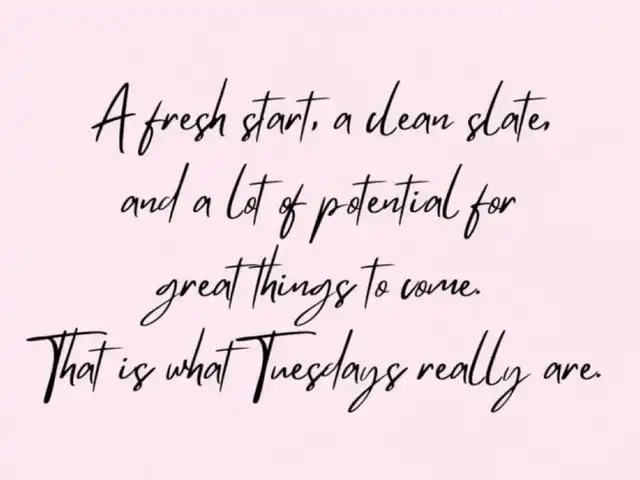 A fresh start, a clean slate,
and a lot of potential for
great things to come.
That is what Tuesdays really are.